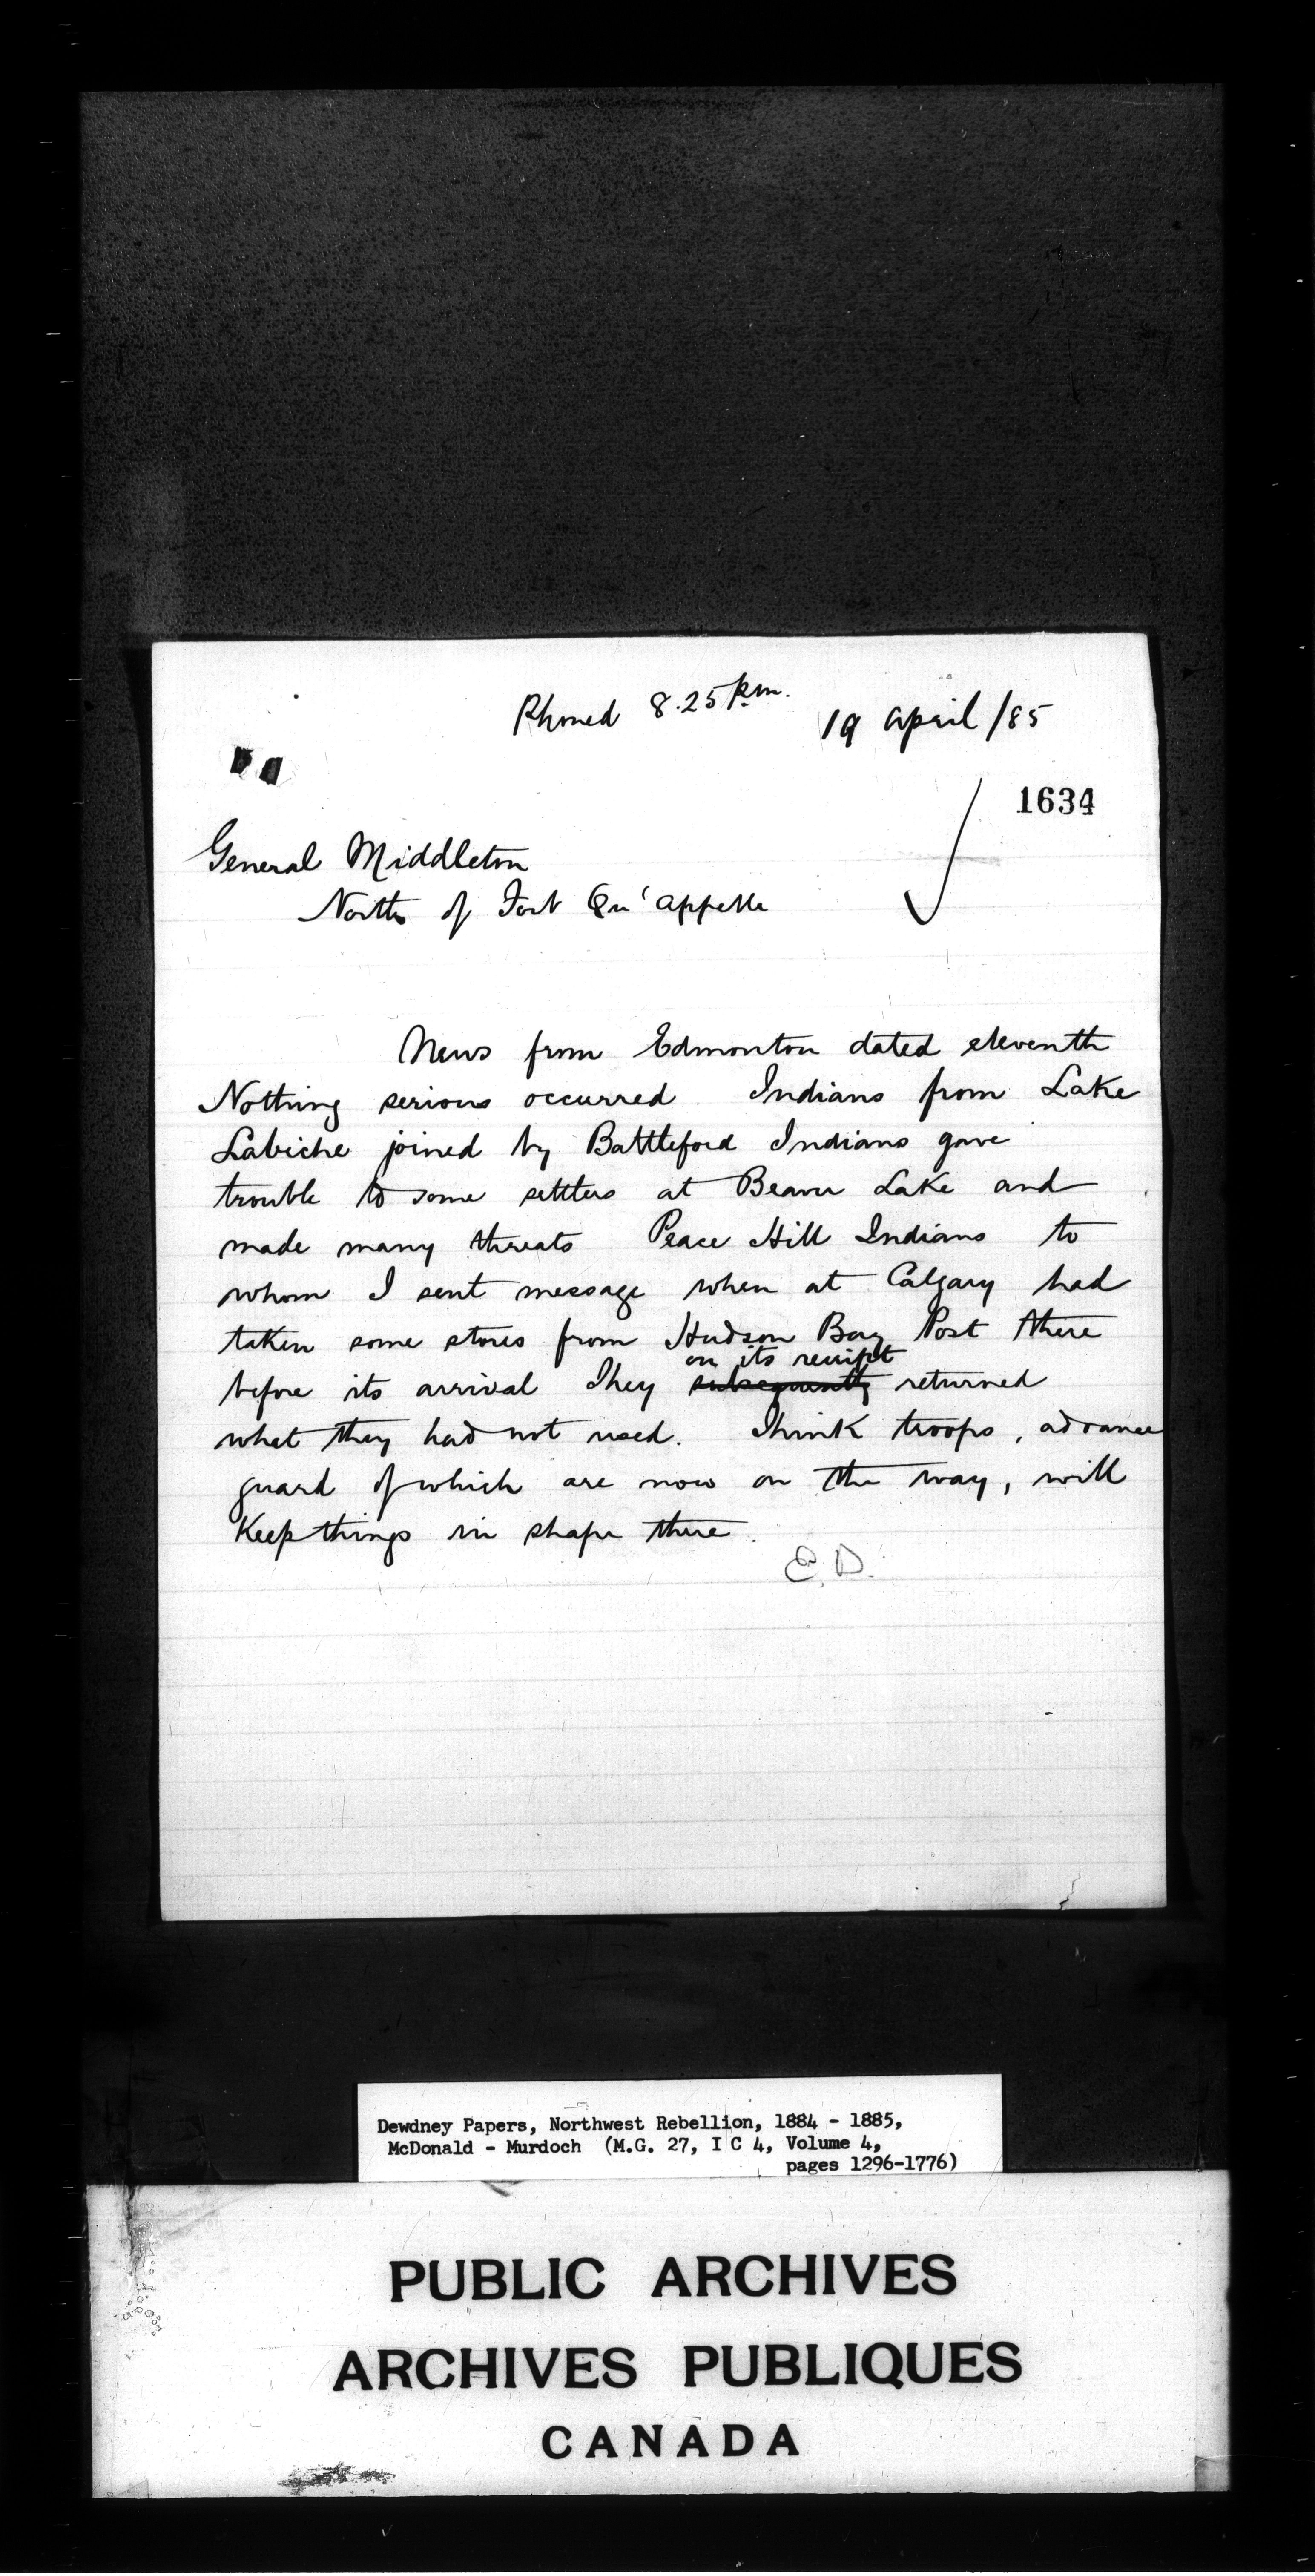 Phoned 8.25 p.m.
19 April /85
1634
General Middleton
North of Fort Qu'Appelle
News from Edmonton dated eleventh
Nothing serious occurred Indians from Lake
Labiche joined by Battleford Indians gave
trouble to some settlers at Beaver Lake and
made many threats Peace Hill Indians to
whom I sent message when at Calgary had
taken some stores from Hudson Bay Post there
on its receipt
before its arrival They subsequently returned
what they had not used. Think troops, advance
guard of which are now on the way, will
Keep things in shape there.
E.D.
Dewdney Papers, Northwest Rebellion, 1884 - 1885,
McDonald - Murdoch (M.G. 27, I C 4, Volume 4,
pages 1296-1776)
PUBLIC ARCHIVES
ARCHIVES PUBLIQUES
CANADA